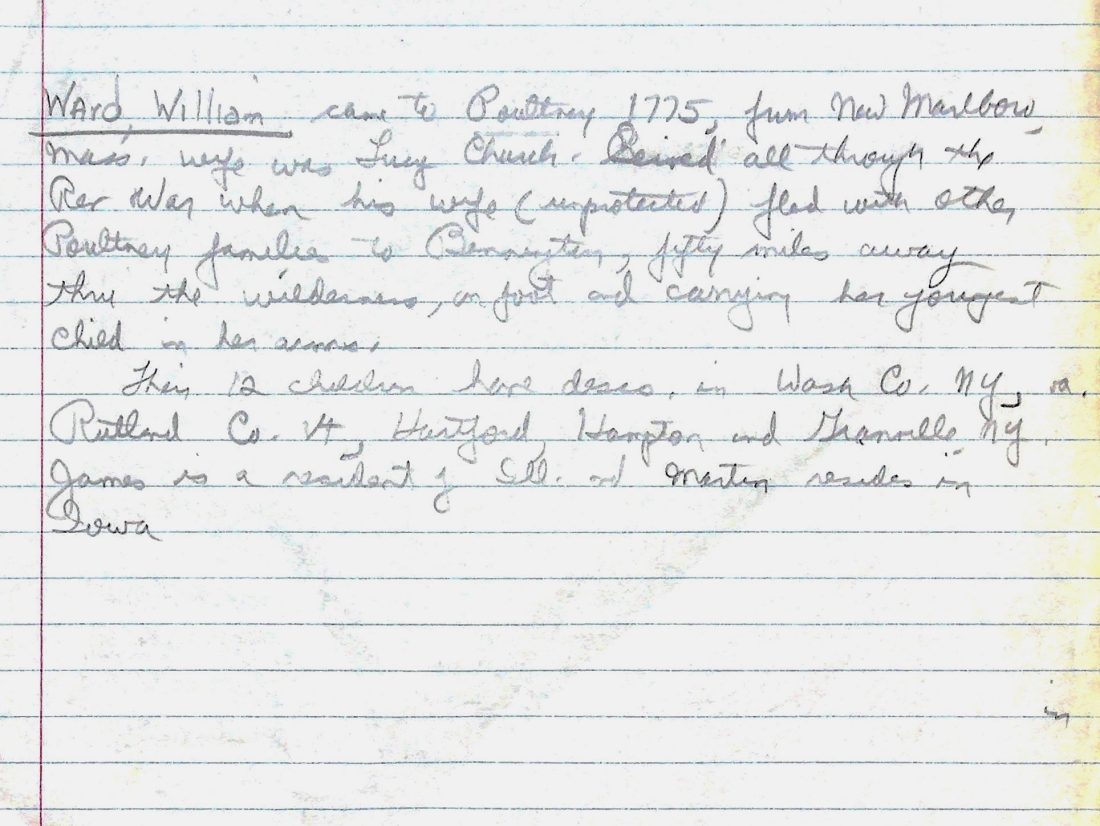 Ward, William came to Poultney 1775, from New Marlboro,
Mass. wife was Lucy Church. Served all through the
Rev War when his wife (unprotected) fled with other
Poultney families to Bennington, fifty miles away
thru the wilderness, on foot and carrying her youngest
child in her arms.
Their 12 children have descs. in Wash Co. NY,
Rutland Co. Vt, Hartford, Hampton and Granville NY.
James is a resident of Ill. and Martin resides in
Iowa